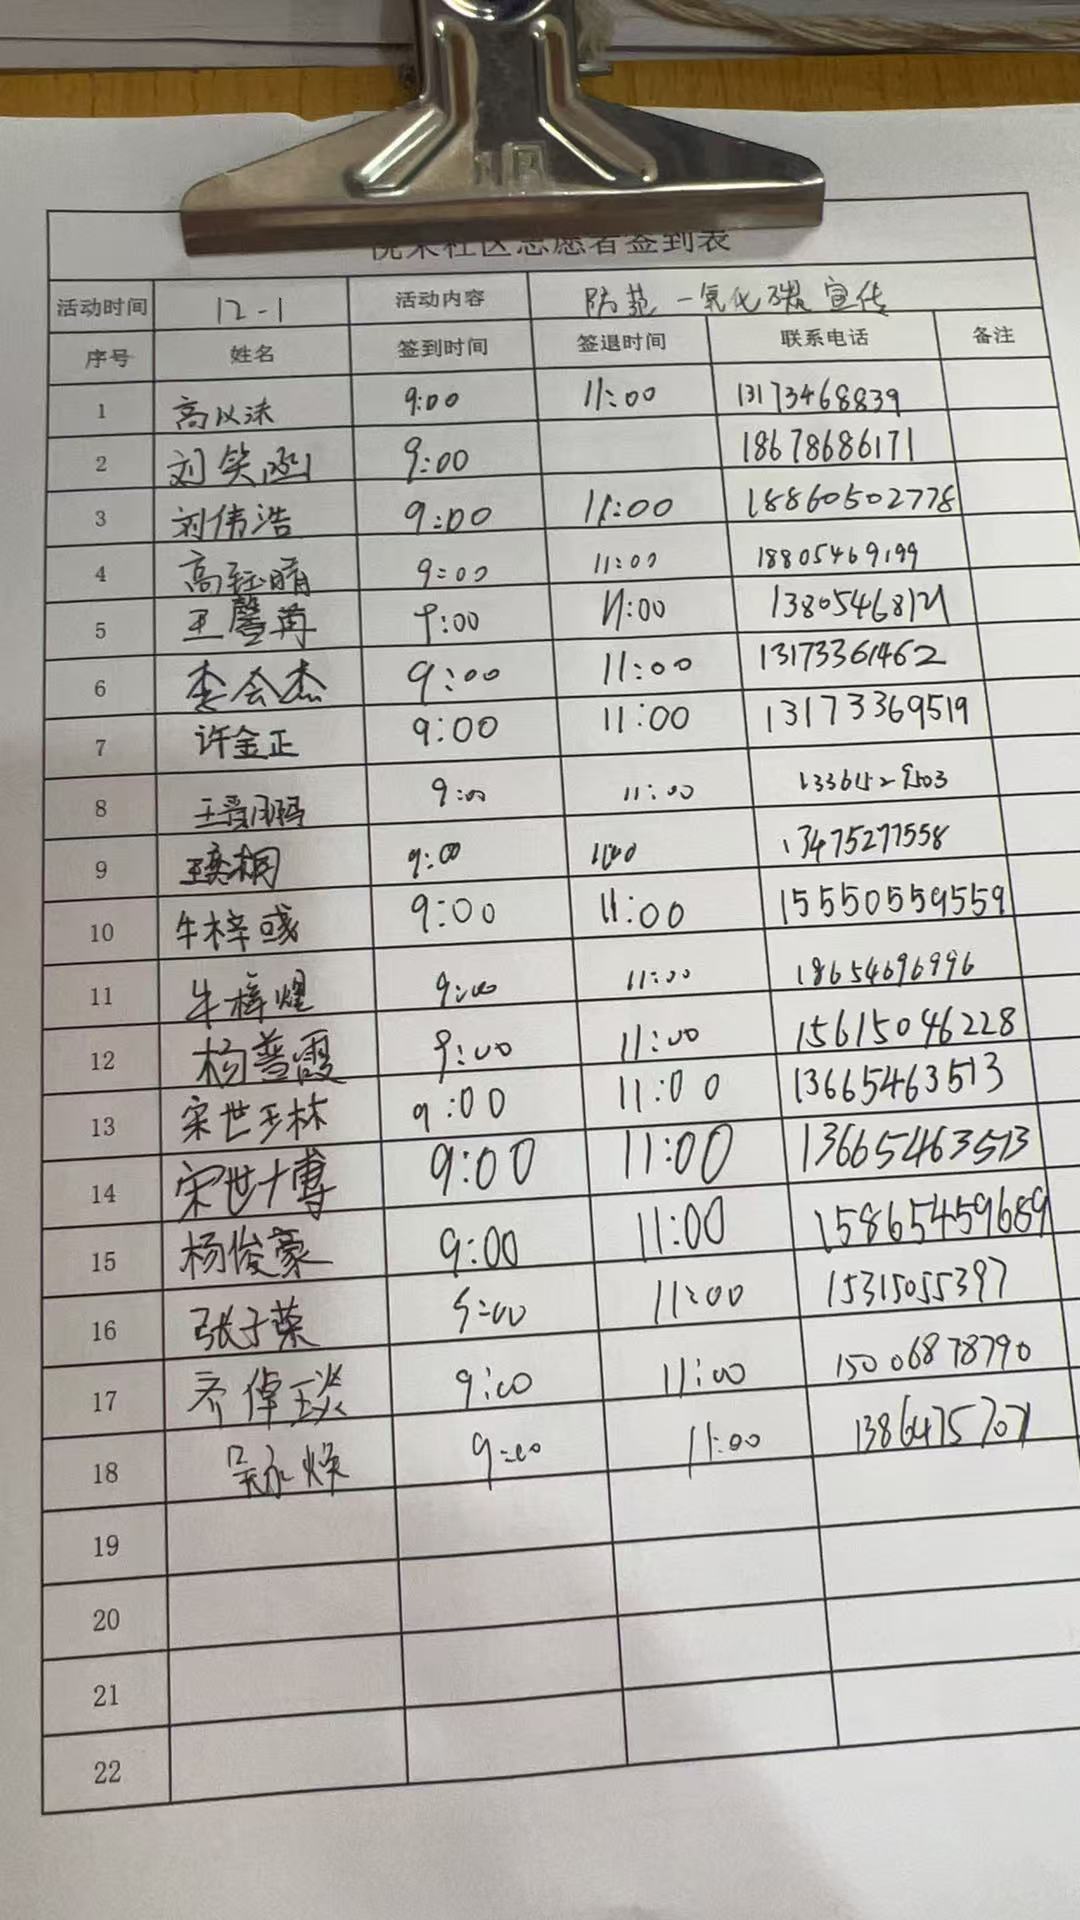 社区志愿者签到表
活动时间 12-1 活动内容 防范一氧化碳宣传
序号 姓名 签到时间 签退时间 联系电话 备注
1 高以沫 9:00 11:00 13173468839
2 刘笑函 9:00 18678686171
3 刘伟浩 9:00 11:00 18860502778
4 高钰晴 9:00 11:00 18805469199
5 王馨苒 9:00 11:00 13805468121
6 李会杰 9:00 11:00 13173361462
7 许金正 9:00 11:00 13173369519
8 9:00 11:00
9 王奕桐 9:00 11:00 13475277558
10 牛梓彧 9:00 11:00 15550559559
11 牛梓耀 9:00 11:00 18654696996
12 杨普霞 9:00 11:00 15615046228
13 宋世 9:00 11:00 13665463513
14 宋世博 9:00 11:00 13665463513
15 杨俊豪 9:00 11:00 15865459689
16 张子荣 9:00 11:00 15315055397
17 齐倬琰 9:00 11:00 15006878790
18 吴永焕 9:00 11:00
19
20
21
22